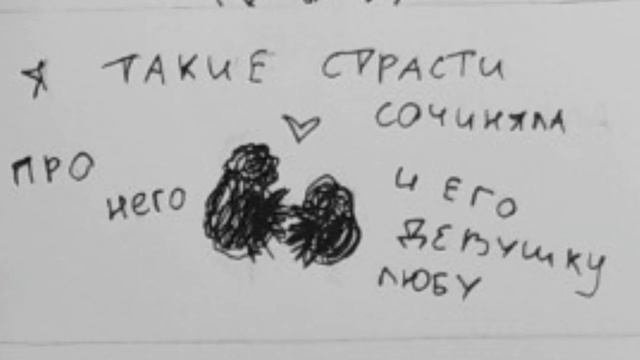 Я ТАКИЕ СТРАСТИ
СОЧИНЯЛА
ПРО
НЕГО
И ЕГО
ДЕВУШКУ
ЛЮБУ